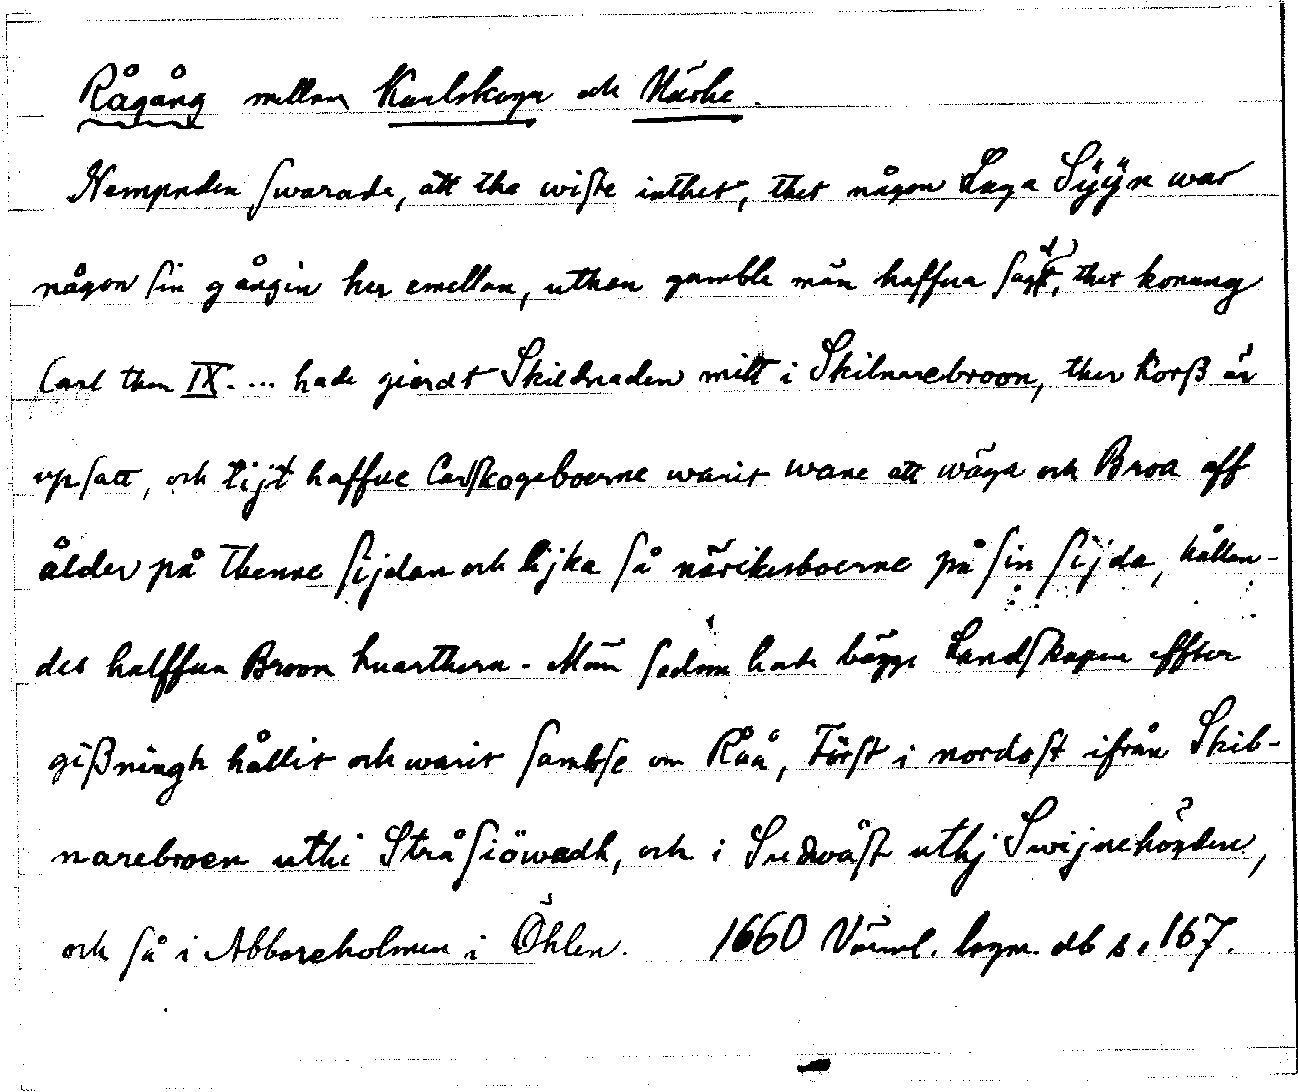 Rågång mellan Karlskoga och Närke.
Nempnden swarade, att the wiste inthet, thet någon Laga Sÿÿn war
någon sin gången her emellan, uthan gamble män haffua sagt, thet konung
Carl then IX. ... hade giordt Skildnaden mitt i Skilnarebroon, ther Korß är
upsatt, och tijt haffue Carlskogeboerne warit wane att wäga och Broa aff
ålder på thenne sijdan och lijka så närikesboerne på sin sijda, hållan-
des halffua Broon huarthera. Män sedan hade bägge Landskapen effter
gißningh hållit och warit sambse om Råå, Först i nordost ifrån Skil-
narebroen uthi Stråsiöwadh, och i Sudwäst uthj Swijnehöyden,
och så i Abboreholmen i Öhlen. 1660 Värml. lagm. db s. 167.